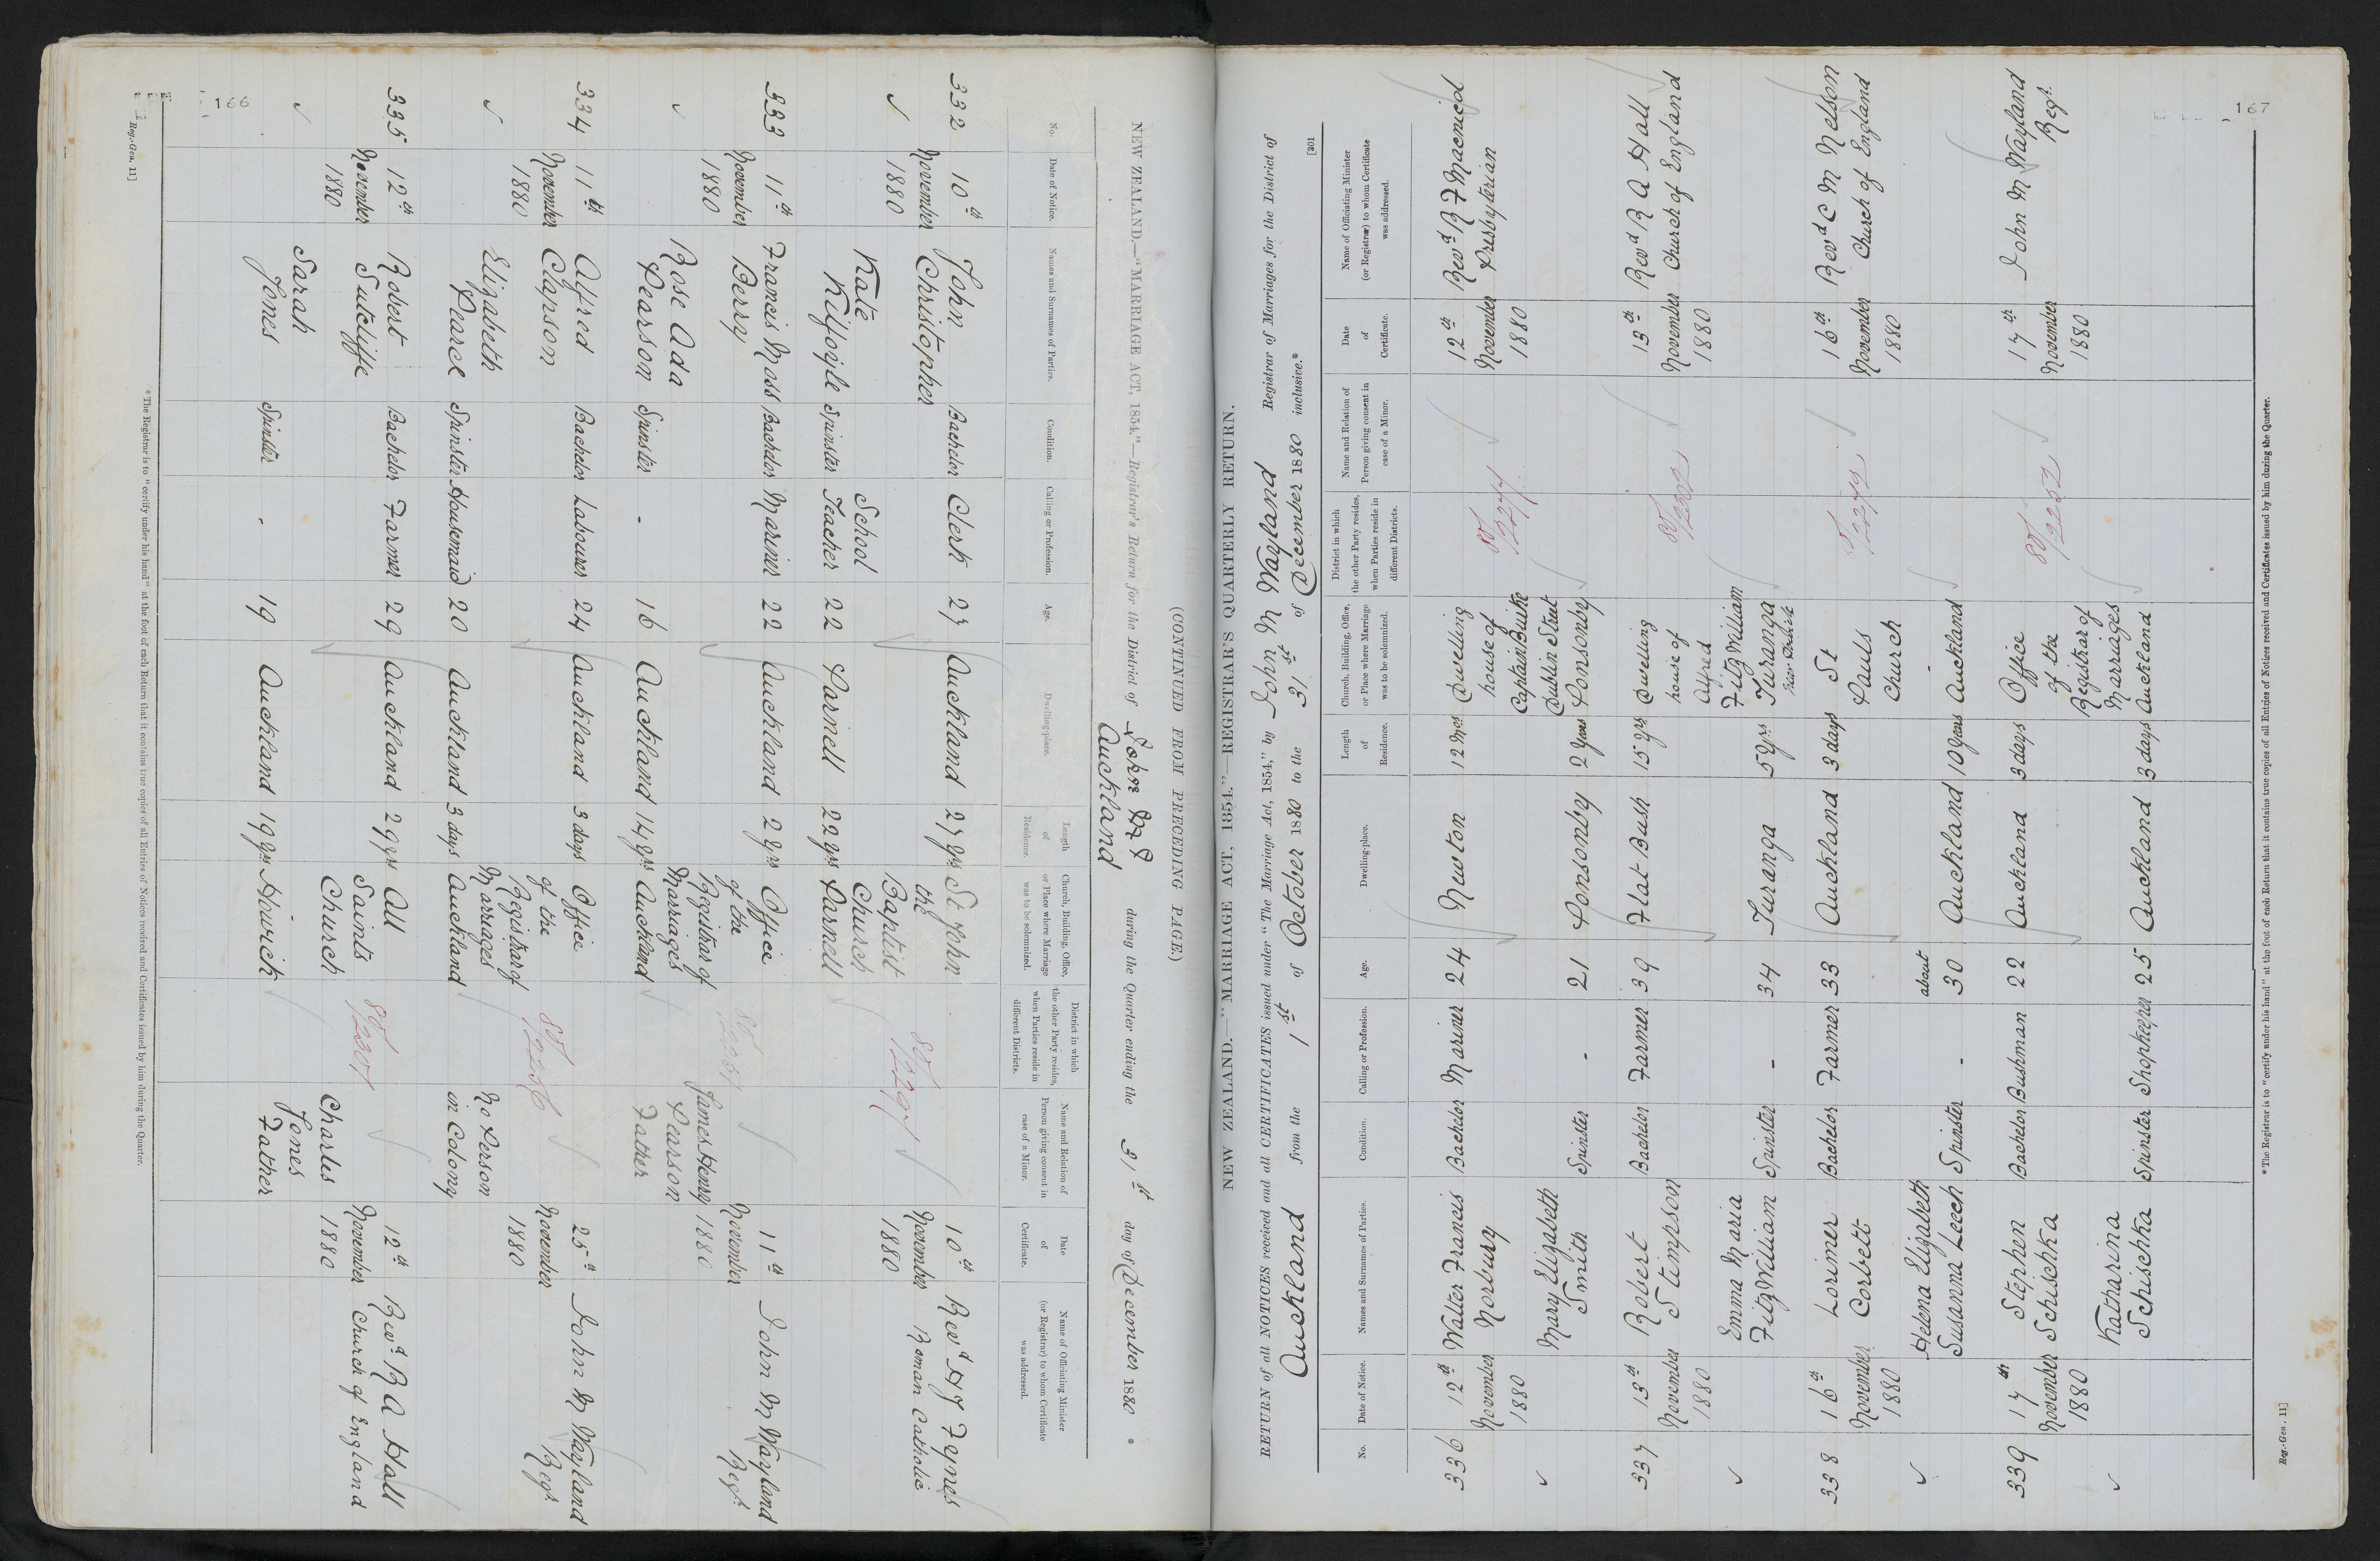 166
(CONTINUED FROM PRECEDING PAGE.)
NEW ZEALAND.—"MARRIAGE ACT, 1854."—Registrar's Return for the District of Auckland during the Quarter ending the 31st day of December 1880 *
No.
Date of Notice.
Names and Surnames of Parties.
Condition.
Calling or Profession.
Age.
Dwelling-place.
Length of Residence.
Church, Building, Office, or Place where Marriage was to be solemnized.
District in which the other Party resides, when Parties reside in different Districts.
Name and Relation of Person giving consent in case of a Minor.
Date of Certificate.
Name of Officiating Minister (or Registrar) to whom Certificate was addressed.
332 10th November 1880
John Christopher Bachelor Clerk 27 Auckland 27 yrs
Kate Spinster School Teacher 22 Parnell 22 yrs
St John the Baptist Church Parnell
10th November 1880
Revd H J Fynes Roman Catholic
333 11th November 1880
Francis Moss Berry Bachelor Mariner 22 Auckland 2 yrs
Rose Ada Pearson Spinster - 16 Auckland 14 yrs
Office of the Registrar of Marriages Auckland
James Henry Pearson Father
11th November 1880
John M Wayland Regr.
334 11th November 1880
Alfred Clapson Bachelor Labourer 24 Auckland 3 days
Elizabeth Pearce Spinster Housemaid 20 Auckland 3 days
Office of the Registrar of Marriages Auckland
80/2256
No Person in Colony
25th November 1880
John M Wayland Regr.
335 12th November 1880
Robert Sutcliffe Bachelor Farmer 29 Auckland 29 yrs
Sarah Jones Spinster - 19 Auckland 19 yrs
All Saints Church Howick
80/2301
Charles Jones Father
12th November 1880
Revd R A Hall Church of England
* The Registrar is to "certify under his hand" at the foot of each Return that it contains true copies of all Entries of Notices received and Certificates issued by him during the Quarter.
Reg.-Gen. 11]
167
[301
NEW ZEALAND.—"MARRIAGE ACT, 1854."—REGISTRAR'S QUARTERLY RETURN.
RETURN of all NOTICES received and all CERTIFICATES issued under "The Marriage Act, 1854," by John M Wayland Registrar of Marriages for the District of
Auckland from the 1st of October 1880 to the 31st of December 1880 inclusive.*
No.
Date of Notice.
Names and Surnames of Parties.
Condition.
Calling or Profession.
Age.
Dwelling-place.
Length of Residence.
Church, Building, Office, or Place where Marriage was to be solemnized.
District in which the other Party resides, when Parties reside in different Districts.
Name and Relation of Person giving consent in case of a Minor.
Date of Certificate.
Name of Officiating Minister (or Registrar) to whom Certificate was addressed.
336 12th November 1880
Walter Francis Norbury Bachelor Mariner 24 Newton 12 mos
Mary Elizabeth Smith Spinster - 21 Ponsonby 2 years
Dwelling house of Captain Burke Dublin Street Ponsonby
12th November 1880
Revd R F Macnicol Presbyterian
337 13th November 1880
Robert Stimpson Bachelor Farmer 39 Flat Bush 15 yrs
Emma Maria FitzWilliam Spinster - 34 Turanga 5 yrs
Dwelling house of Alfred FitzWilliam Turanga
80/2302
13th November 1880
Revd R A Hall Church of England
338 16th November 1880
Lorimer Corbett Bachelor Farmer 33 Auckland 3 days
Helena Elizabeth Susanna Leech Spinster - about 30 Auckland 10 years
St Pauls Church - Auckland
16th November 1880
Revd C M Nelson Church of England
339 17th November 1880
Stephen Schischka Bachelor Bushman 22 Auckland 3 days
Katharina Schischka Spinster Shopkeeper 25 Auckland 3 days
Office of the Registrar of Marriages Auckland
80/2252
17th November 1880
John M Wayland Regr.
* The Registrar is to "certify under his hand" at the foot of each Return that it contains true copies of all Entries of Notices received and Certificates issued by him during the Quarter.
Reg.-Gen. 11]